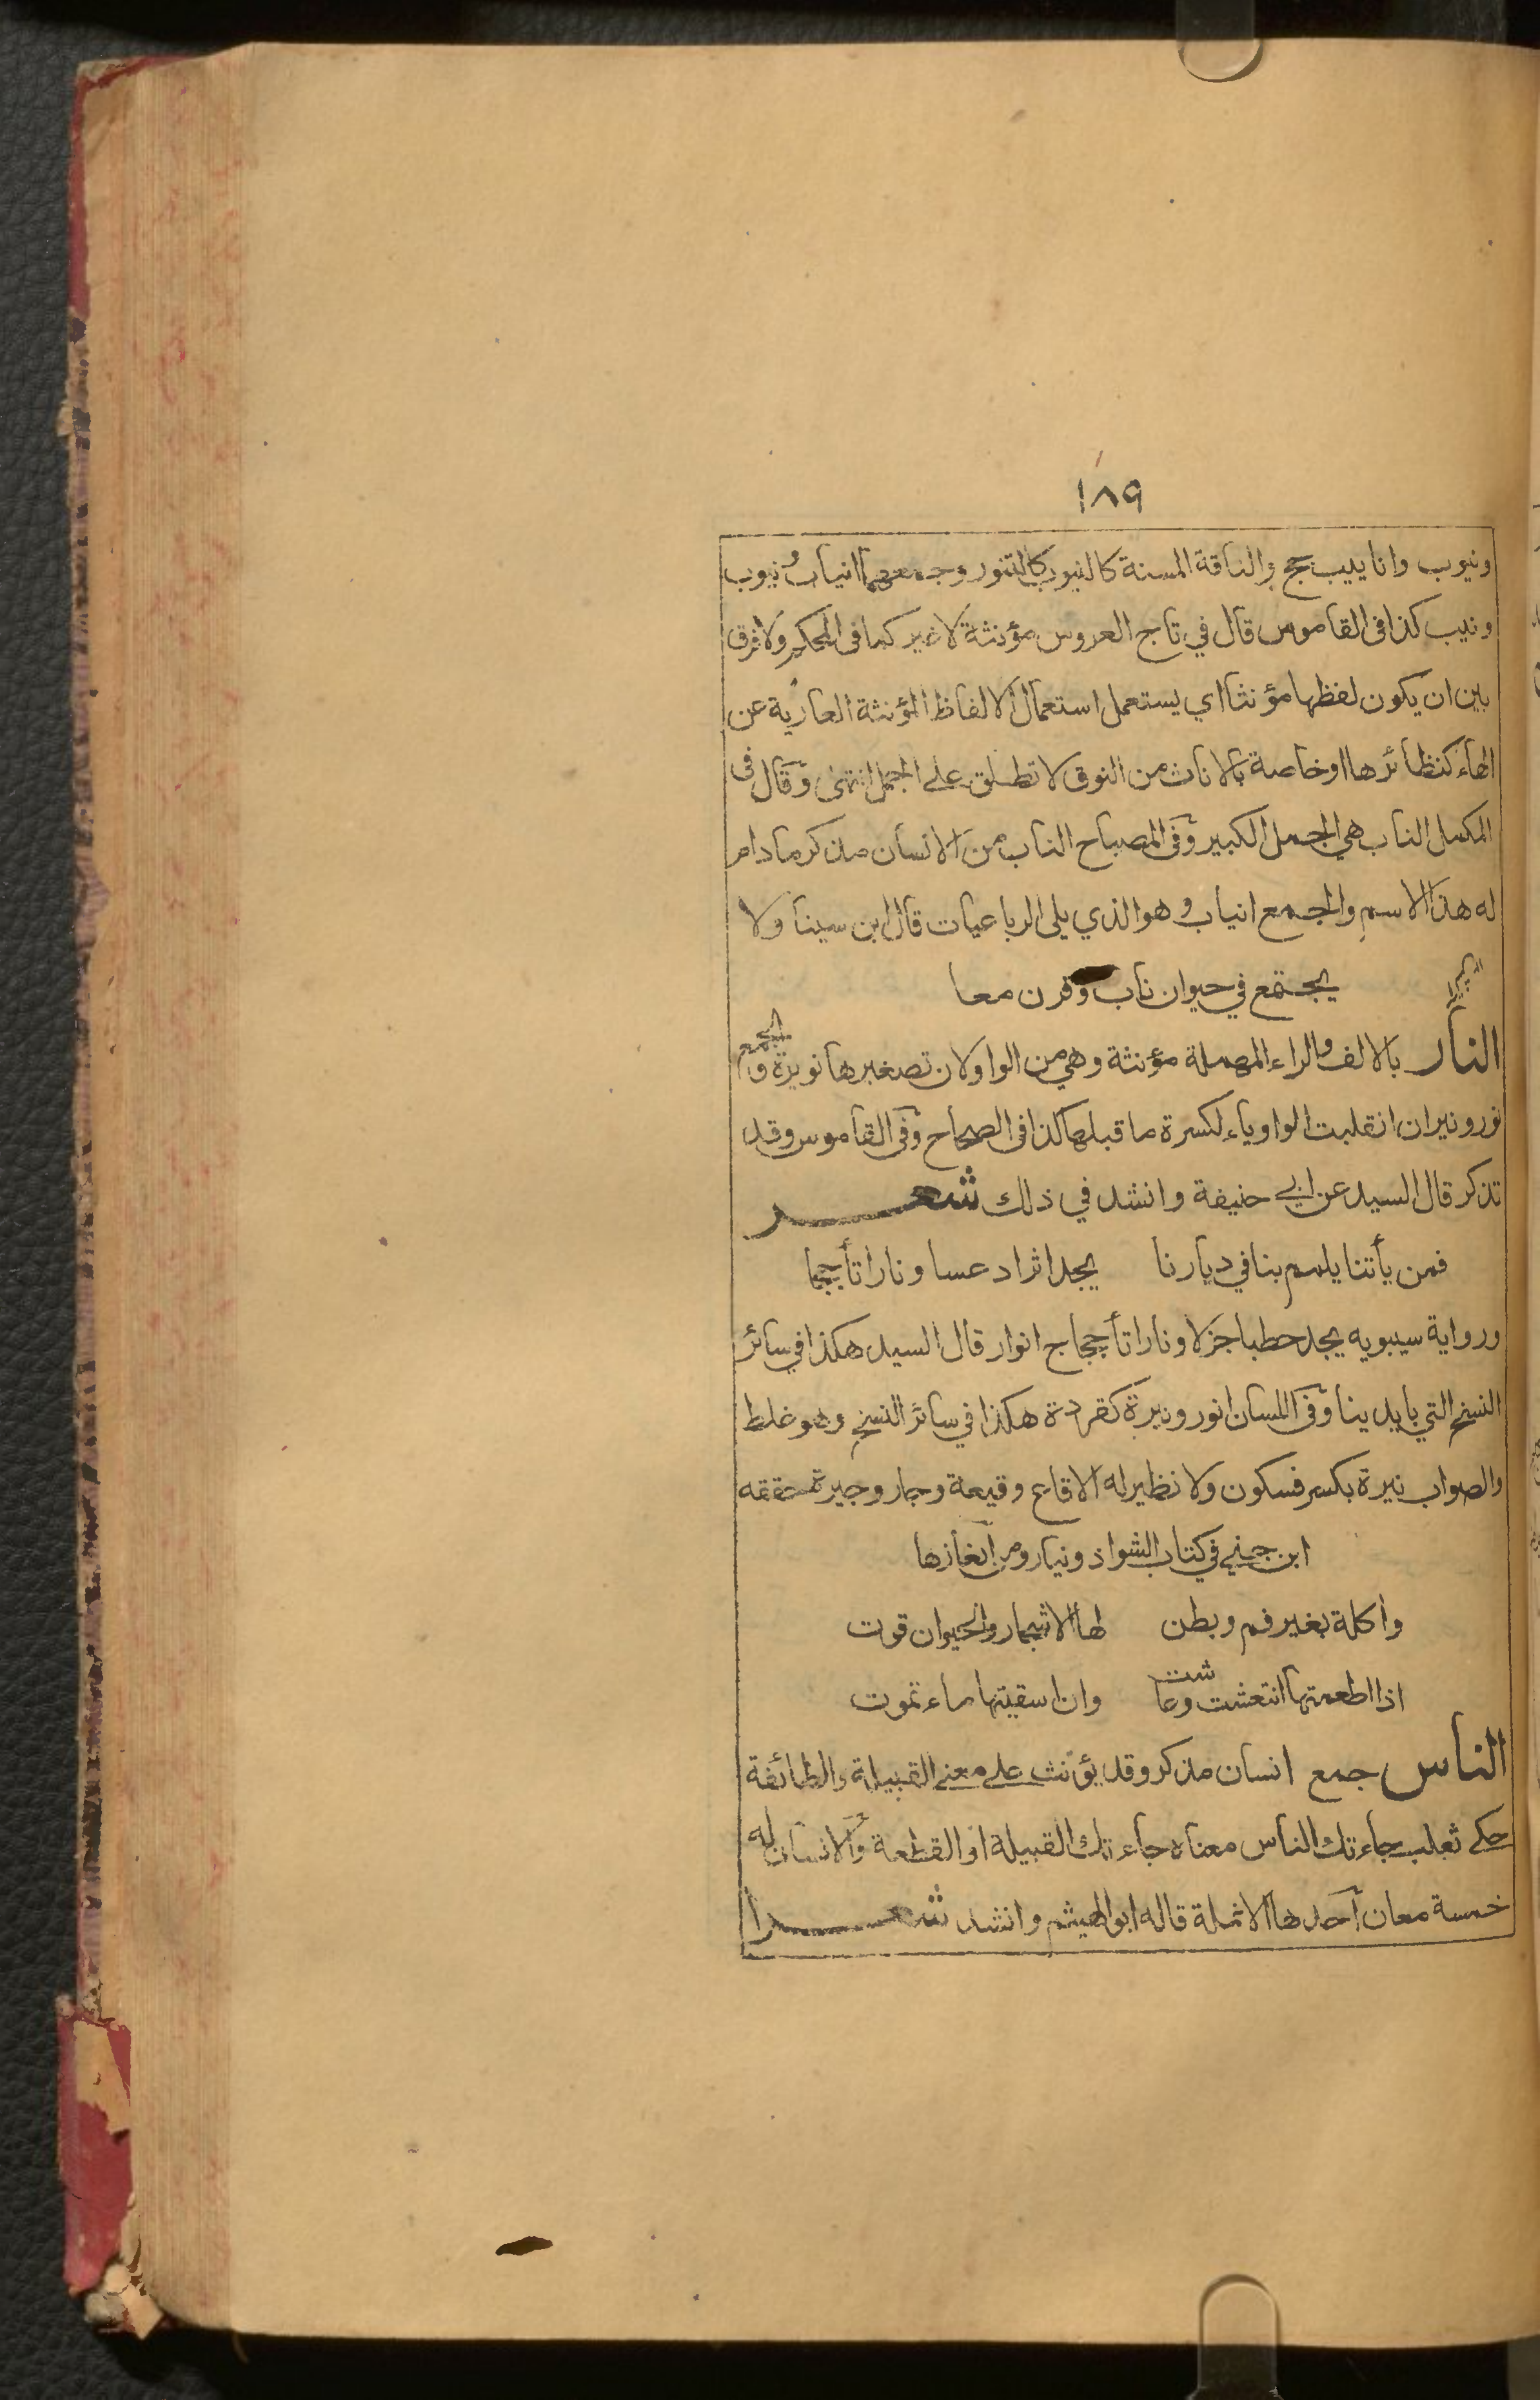 ١٨٩
ونيوب وانا يليب جج والناقة المسنة كالنيوب كالتنور وجمعهما انياب ونيوب
ونيب كذا فى القاموس قال في تاج العروس مؤنثة لا غير كما فى المحكم ولا فرق
بين ان يكون لفظها مؤنثا اي يستعمل استعمال الالفاظ المؤنثة العارية عن
الهاء كنظائرها او خاصة بالاناث من النوق لا تطلق على الجمل انتهى وقال فى
المكمل الناب هي الجمل الكبير وفى المصباح الناب من الانسان مذكر ما دام
له هذا الاسم والجمع انياب وهو الذي يلى الرباعيات قال ابن سينا ولا
يجتمع في حيوان ناب وقرن معا
النار بالالف والراء المهملة مؤنثة وهي من الواو لان تصغيرها نويرة والجمع
نور ونيران انقلبت الواو ياء لكسرة ما قبلها كذا فى الصحاح وفى القاموس وقد
تذكر قال السيد عن ابي حنيفة وانشد في ذلك شعـــر
فمن يأتنا يلمم بنا في ديارنا يجد اثرا دعسا ونارا تأججا
ورواية سيبويه يجد حطبا جزلا ونارا تأججا ج انوار قال السيد هكذا في سائر
النسخ التي بايدينا وفى اللسان انور ونيرة كقردة هكذا في سائر النسخ وهو غلط
والصواب نيرة بكسر فسكون ولا نظير له الا قاع وقيعة وجار وجيرة حققه
ابن جني في كتاب الشواذ ونيار ومن الغازها
وآكلة بغير فم وبطن لها الاشجار والحيوان قوت
اذا اطعمتها انتعشت وعاشت وان اسقيتها ماء تموت
الناس جمع انسان مذكر وقد يؤنث على معنى القبيلة والطائفة
حكى ثعلب جاءتك الناس معناه جاءتك القبيلة او القطعة والانسان له
خمسة معان احدها الانملة قاله ابو الهيثم وانشد شعـــرا